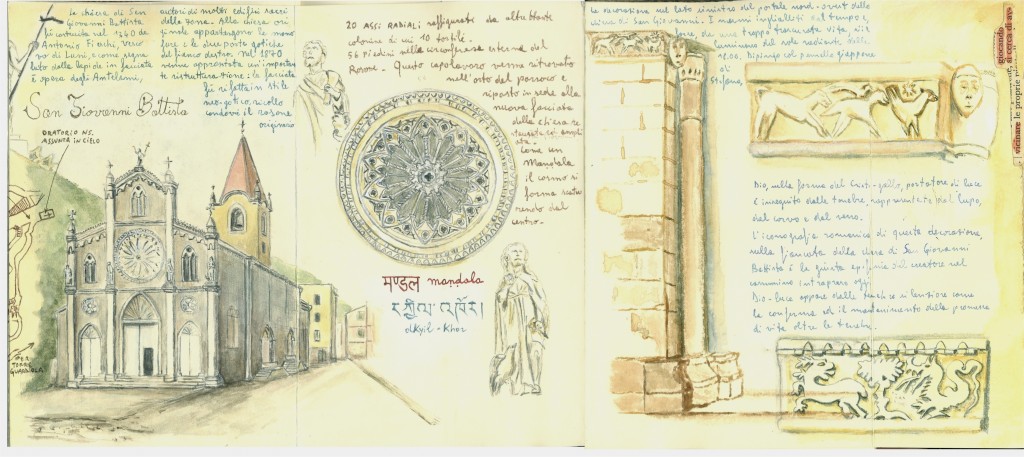 la chiesa di San
Giovanni Battista
fu costruita nel 1360 da
Antonio
di Luni, e come segna
la lapide in facciata
è opera degli Antelami,
autori di molti edifici sacri
della zona. Alla chiesa ori
ginale appartengono le mono
fore e le due porte gotiche
del fianco destro. Nel 1870
venne approntata un'importan
te ristrutturazione: la facciata
fu rifatta in stile
neo-gotico, ricollo
candovi il rosone
originario
San Giovanni Battista
ORATORIO NS.
ASSUNTA IN CIELO
PER
TORRE
GUARDIOLA
20 ASSI RADIALI raffigurati da altrettante
colonine di cui 10 tortili.
56 piedini nella circonferenza interna del
Rosone. Questo capolavoro venne ritrovato
nell'orto del parroco e
riposto in sede alla
nuova facciata
della chiesa re
Come un
Mandala
il cosmo si
forma scatu
rendo dal
centro.
मण्डल mandala
དཀྱིལ་འཁོར།
dkyil-khor
La decorazione sul lato sinistro del portale nord-ovest della
chiesa di San Giovanni. I marmi ingialliti dal tempo e,
forse, da una troppo trascurata vita,
luminano del sole radiente, delle
18.00. Dipingo col pennello giapponese
di
Stefano,
giocando
si cerca di av-
vicinare le proprie
Dio, nella forma del Cristo-gallo, portatore di luce
è inseguito dalle tenebre, rappresentate dal lupo,
dal corvo e dal
L'iconografia romanica di questa decorazione,
nella facciata della chiesa di San Giovanni
Battista è la giusta epifania del creatore nel
cammino intrapreso oggi.
Dio-luce appare dalle tenebre e silenzioso come
la conferma ed il mantenimento della promessa
di vita oltre le tenebre.